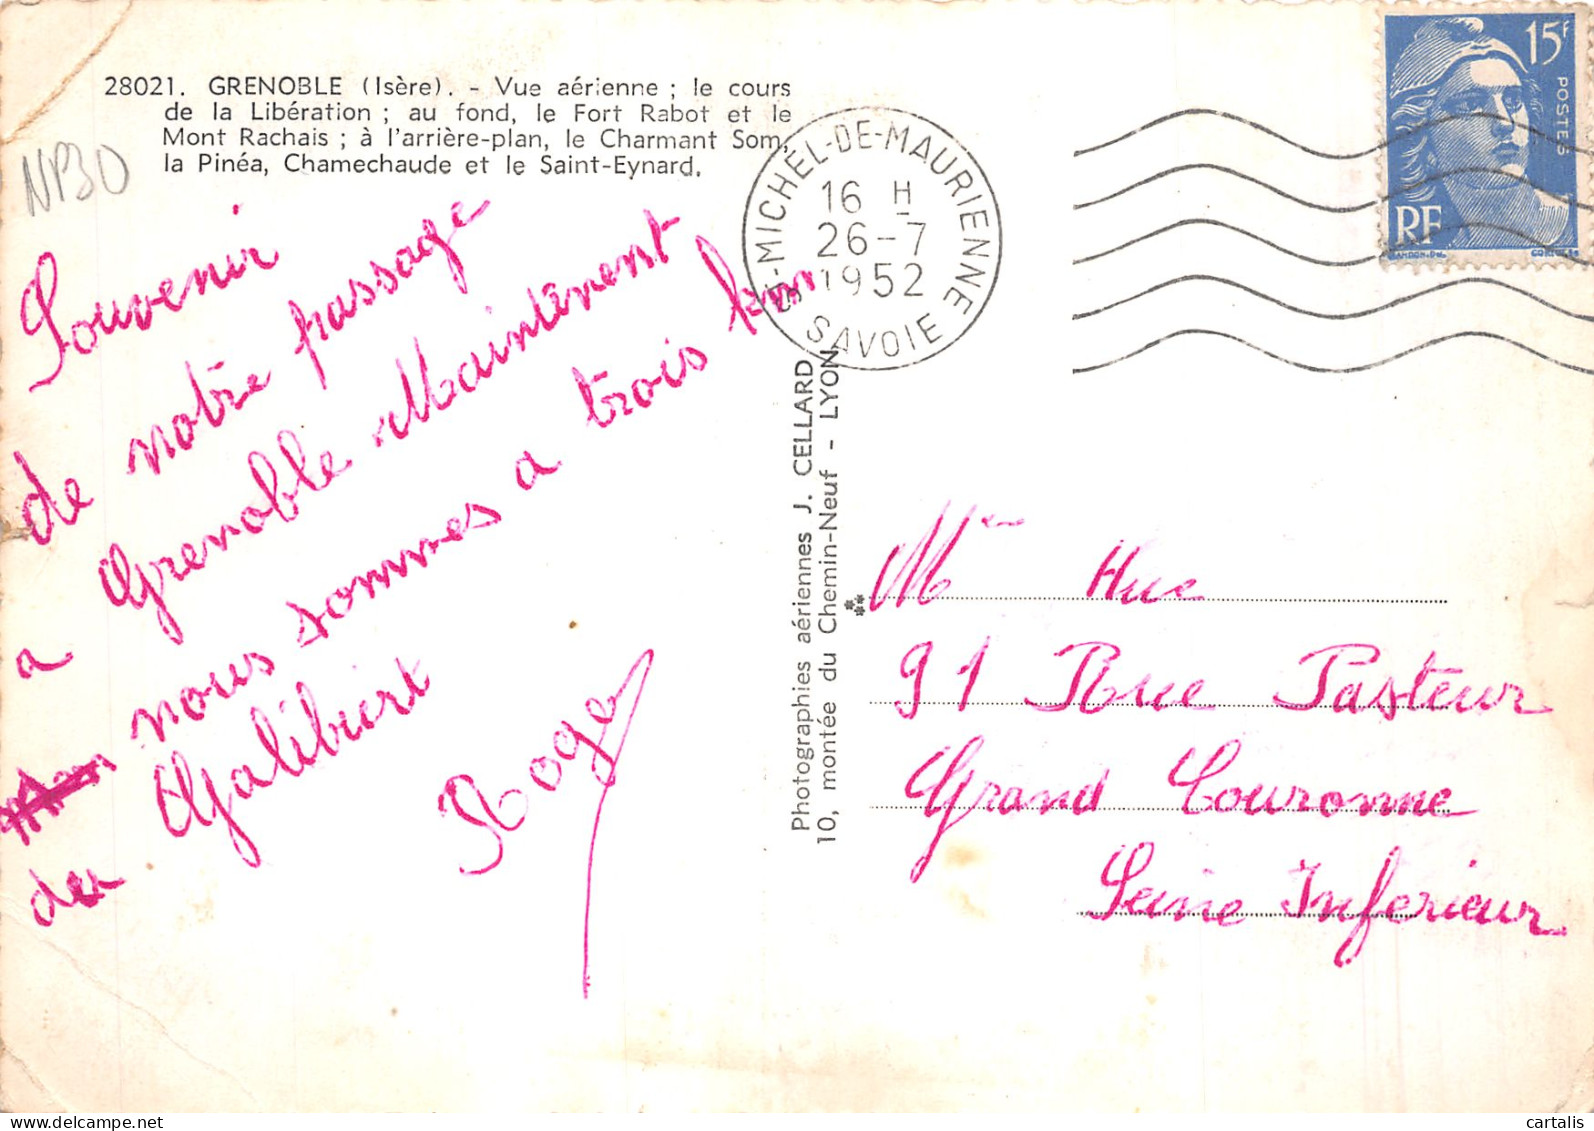 28021. GRENOBLE (Isère). - Vue aérienne ; le cours
de la Libération ; au fond, le Fort Rabot et le
Mont Rachais ; à l'arrière-plan, le Charmant Som,
la Pinéa, Chamechaude et le Saint-Eynard.
NP30
Souvenir
de notre passage
a Grenoble Maintenent
nous sommes a trois km
du Galibiert
Roger
Photographies aériennes J. CELLARD
10, montée du Chemin-Neuf - LYON
ST-MICHEL-DE-MAURIENNE
16 H
26-7
1952
SAVOIE
15F
POSTES
RF
GANDON-Del.
Mr Huc
91 Rue Pasteur
Grand Couronne
Seine Inferieur
cartalis